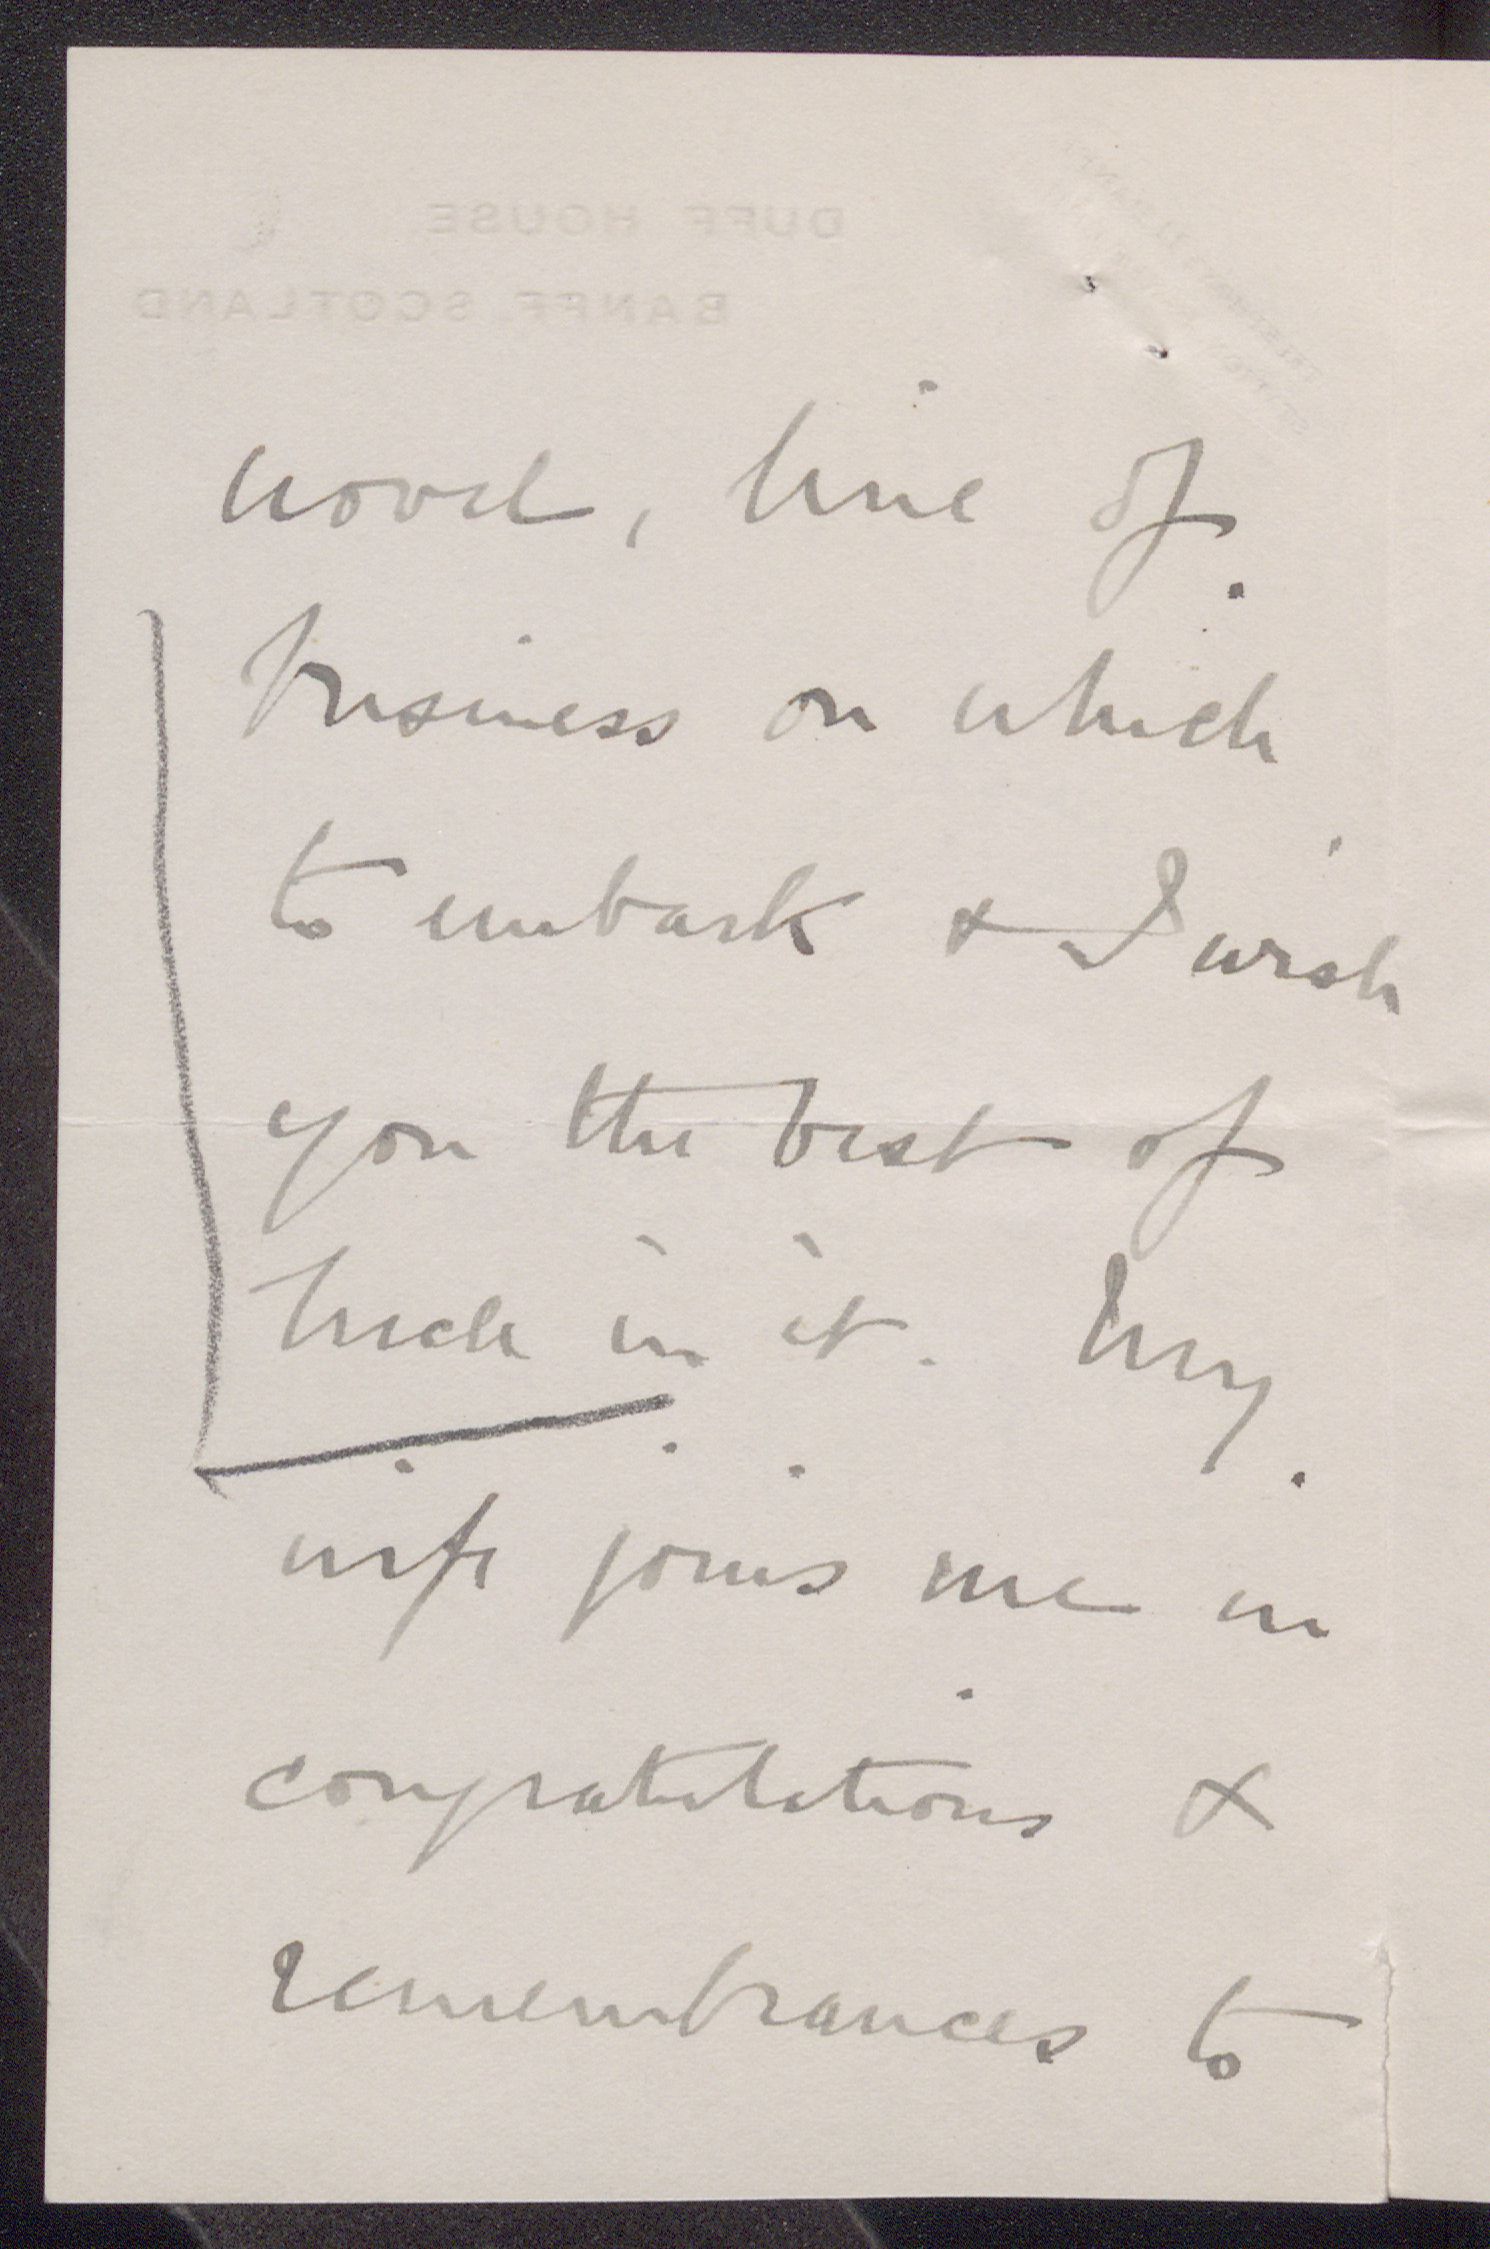 DUFF HOUSE
BANFF, SCOTLAND
novel, line of
business on which
to embark & I wish
you the best of
luck in it. My
wife joins me in
congratulations &
remembrances to